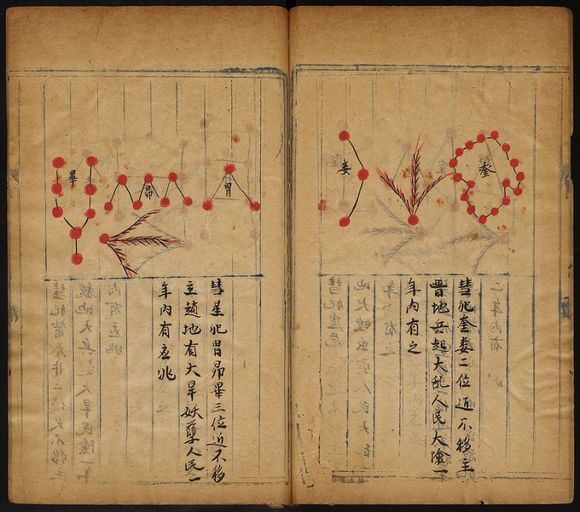 奎
婁
彗犯奎婁二位近不移主
晉地兵起大亂人民大險一
年內有之
胃
昴
畢
彗星犯胃昴畢三位近不移
主趙地有大旱妖孽人民一
年內有应兆